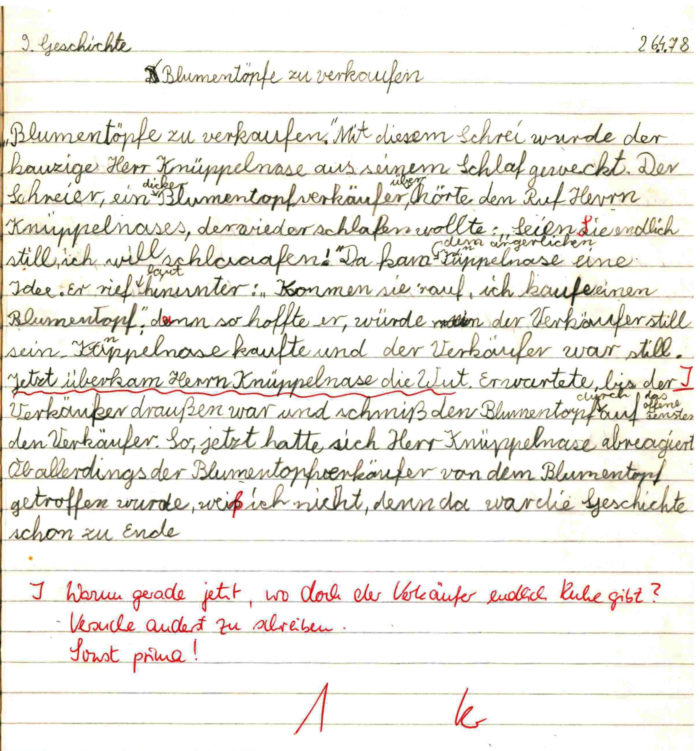 9. Geschichte 26.4.78
Blumentöpfe zu verkaufen
„Blumentöpfe zu verkaufen." Mit diesem Schrei wurde der
kauzige Herr Knüppelnase aus seinem Schlaf geweckt. Der
dicke über
Schreier, ein Blumentopfverkäufer, hörte den Ruf Herrn
Knüppelnases, der wieder schlafen wollte: „Seien Sie endlich
dem ärgerlichen
still, ich will schlaaafen!" Da kam Knüppelnase eine
laut
Idee. Er rief hinunter: „Kommen sie rauf, ich kaufe einen
Blumentopf", denn so hoffte er, würde der Verkäufer still
sein. Knüppelnase kaufte und der Verkäufer war still.
Jetzt überkam Herrn Knüppelnase die Wut. Er wartete, bis der I
durch das offene Fenster
Verkäufer draußen war und schmiß den Blumentopf auf
den Verkäufer. So, jetzt hatte sich Herr Knüppelnase abreagiert
Ob allerdings der Blumentopfverkäufer von dem Blumentopf
getroffen wurde, weiß ich nicht, denn da war die Geschichte
schon zu Ende
I Warum gerade jetzt, wo doch der Verkäufer endlich Ruhe gibt?
Versuche anders zu schreiben.
Sonst prima!
1